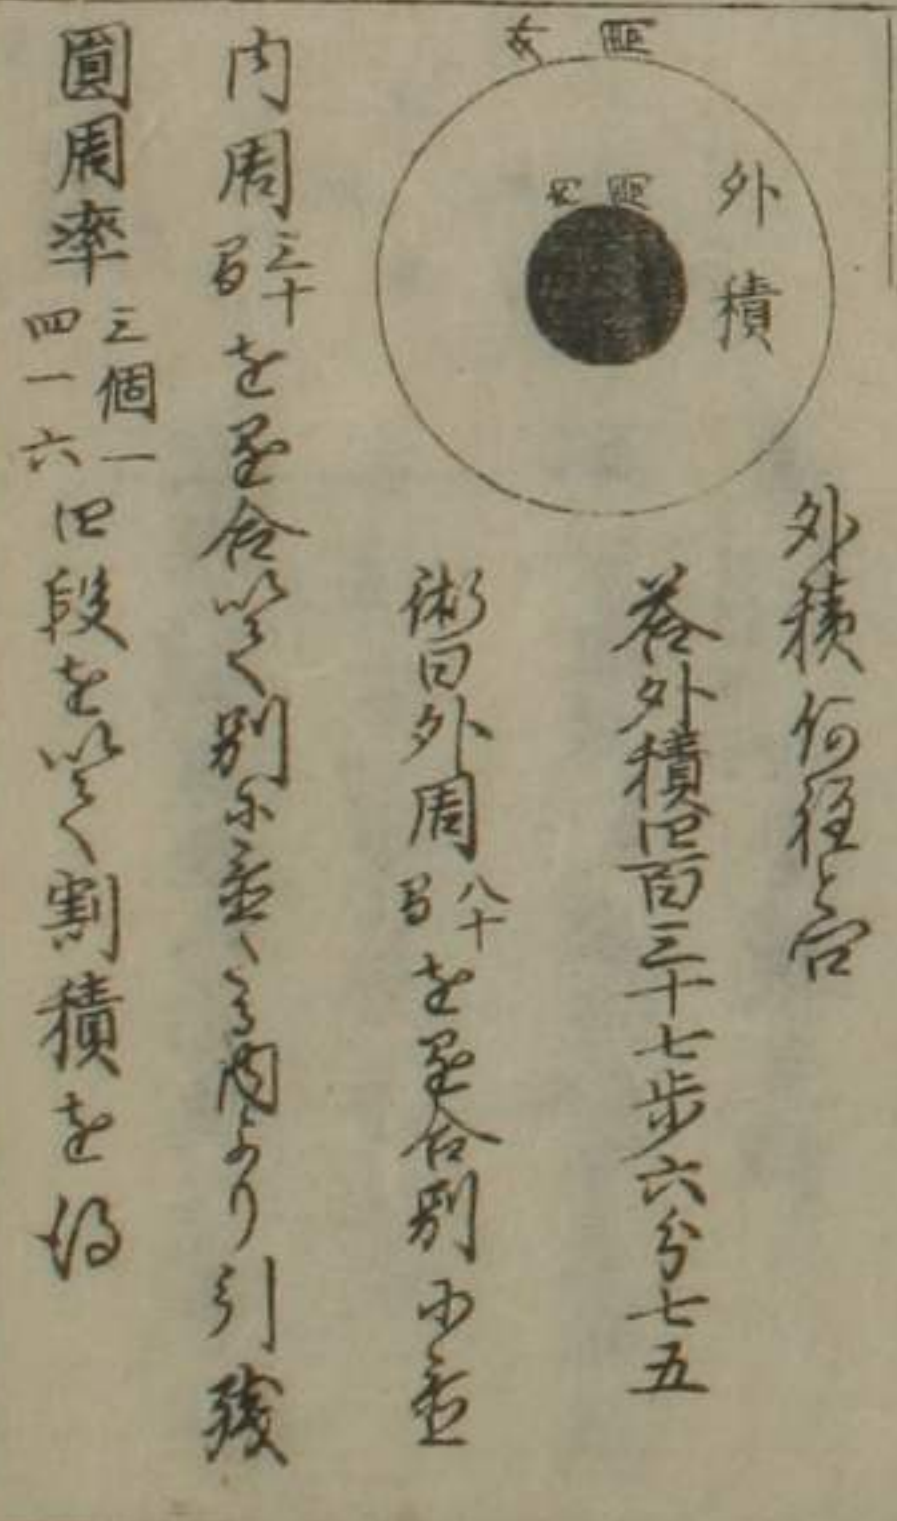 外周
内周
外積
外積何程と問
荅外積四百三十七歩六分七五
術曰外周八十間を置合別に置
内周三十間を置合以て別に置く内より引残
圓周率三個一四一六四段を以て割積を得